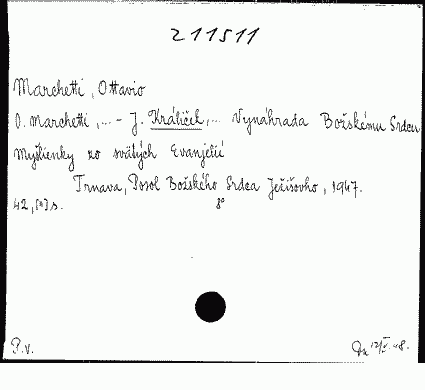 211511
Marchetti, Ottavio
O. Marchetti,... - J. Králiček,... Vynáhrada Božskému Srdcu
Myšlienky zo svätých Evanjelií
Trnava, Posol Božského Srdca Ježišovho, 1947.
42, [1] s. 8°
P.v.